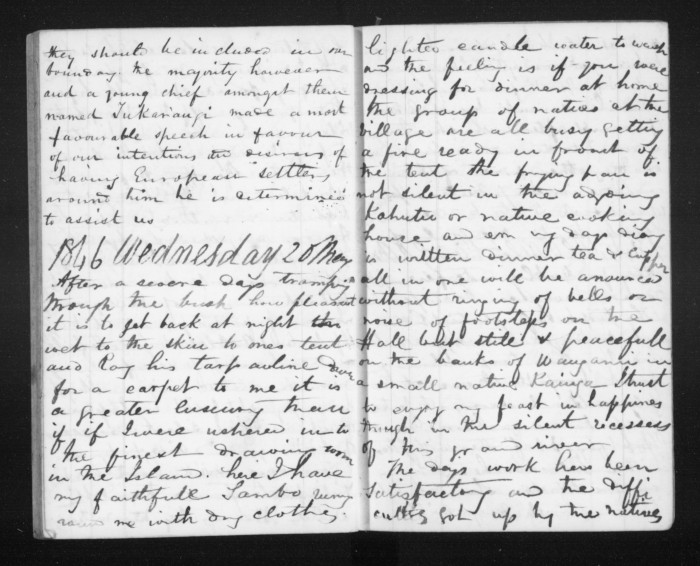 they should be included in our
boundary the majority however
and a young chief amongst them
named Tukarangi made a most
favourable speech in favour
of our intentions desirous of
having European settlers
around him he is determined
to assist us
1846 Wednesday 20 May
After a severe days tramping
through the bush how pleasant
it is to get back at night
wet to the skin to ones tent
and Roy his tarpauline down
for a carpet to me it is
a greater luxury than
if if I were ushered into
the finest drawing room
in the Island. here I have
my faithfull Sambo
round me with dry clothes.
lighted candle water to wash
and the feeling is if you were
dressing for dinner at home
the group of natives at the
village are all busy getting
a fire ready in front of
the tent the frying pan is
not silent in the adjoing
Kahutu or native cooking
house and ere my days diary
is written dinner tea & supper
all in one will be anounced
without ringing of bells or
noise of footsteps on the
Hall but still & peacefull
on the banks of Wanganui in
a small native Kainga I trust
to enjoy my feast in happiness
though in the silent recesses
of this grand river
The days work have been
satisfactory and the diffi
culties got up by the natives